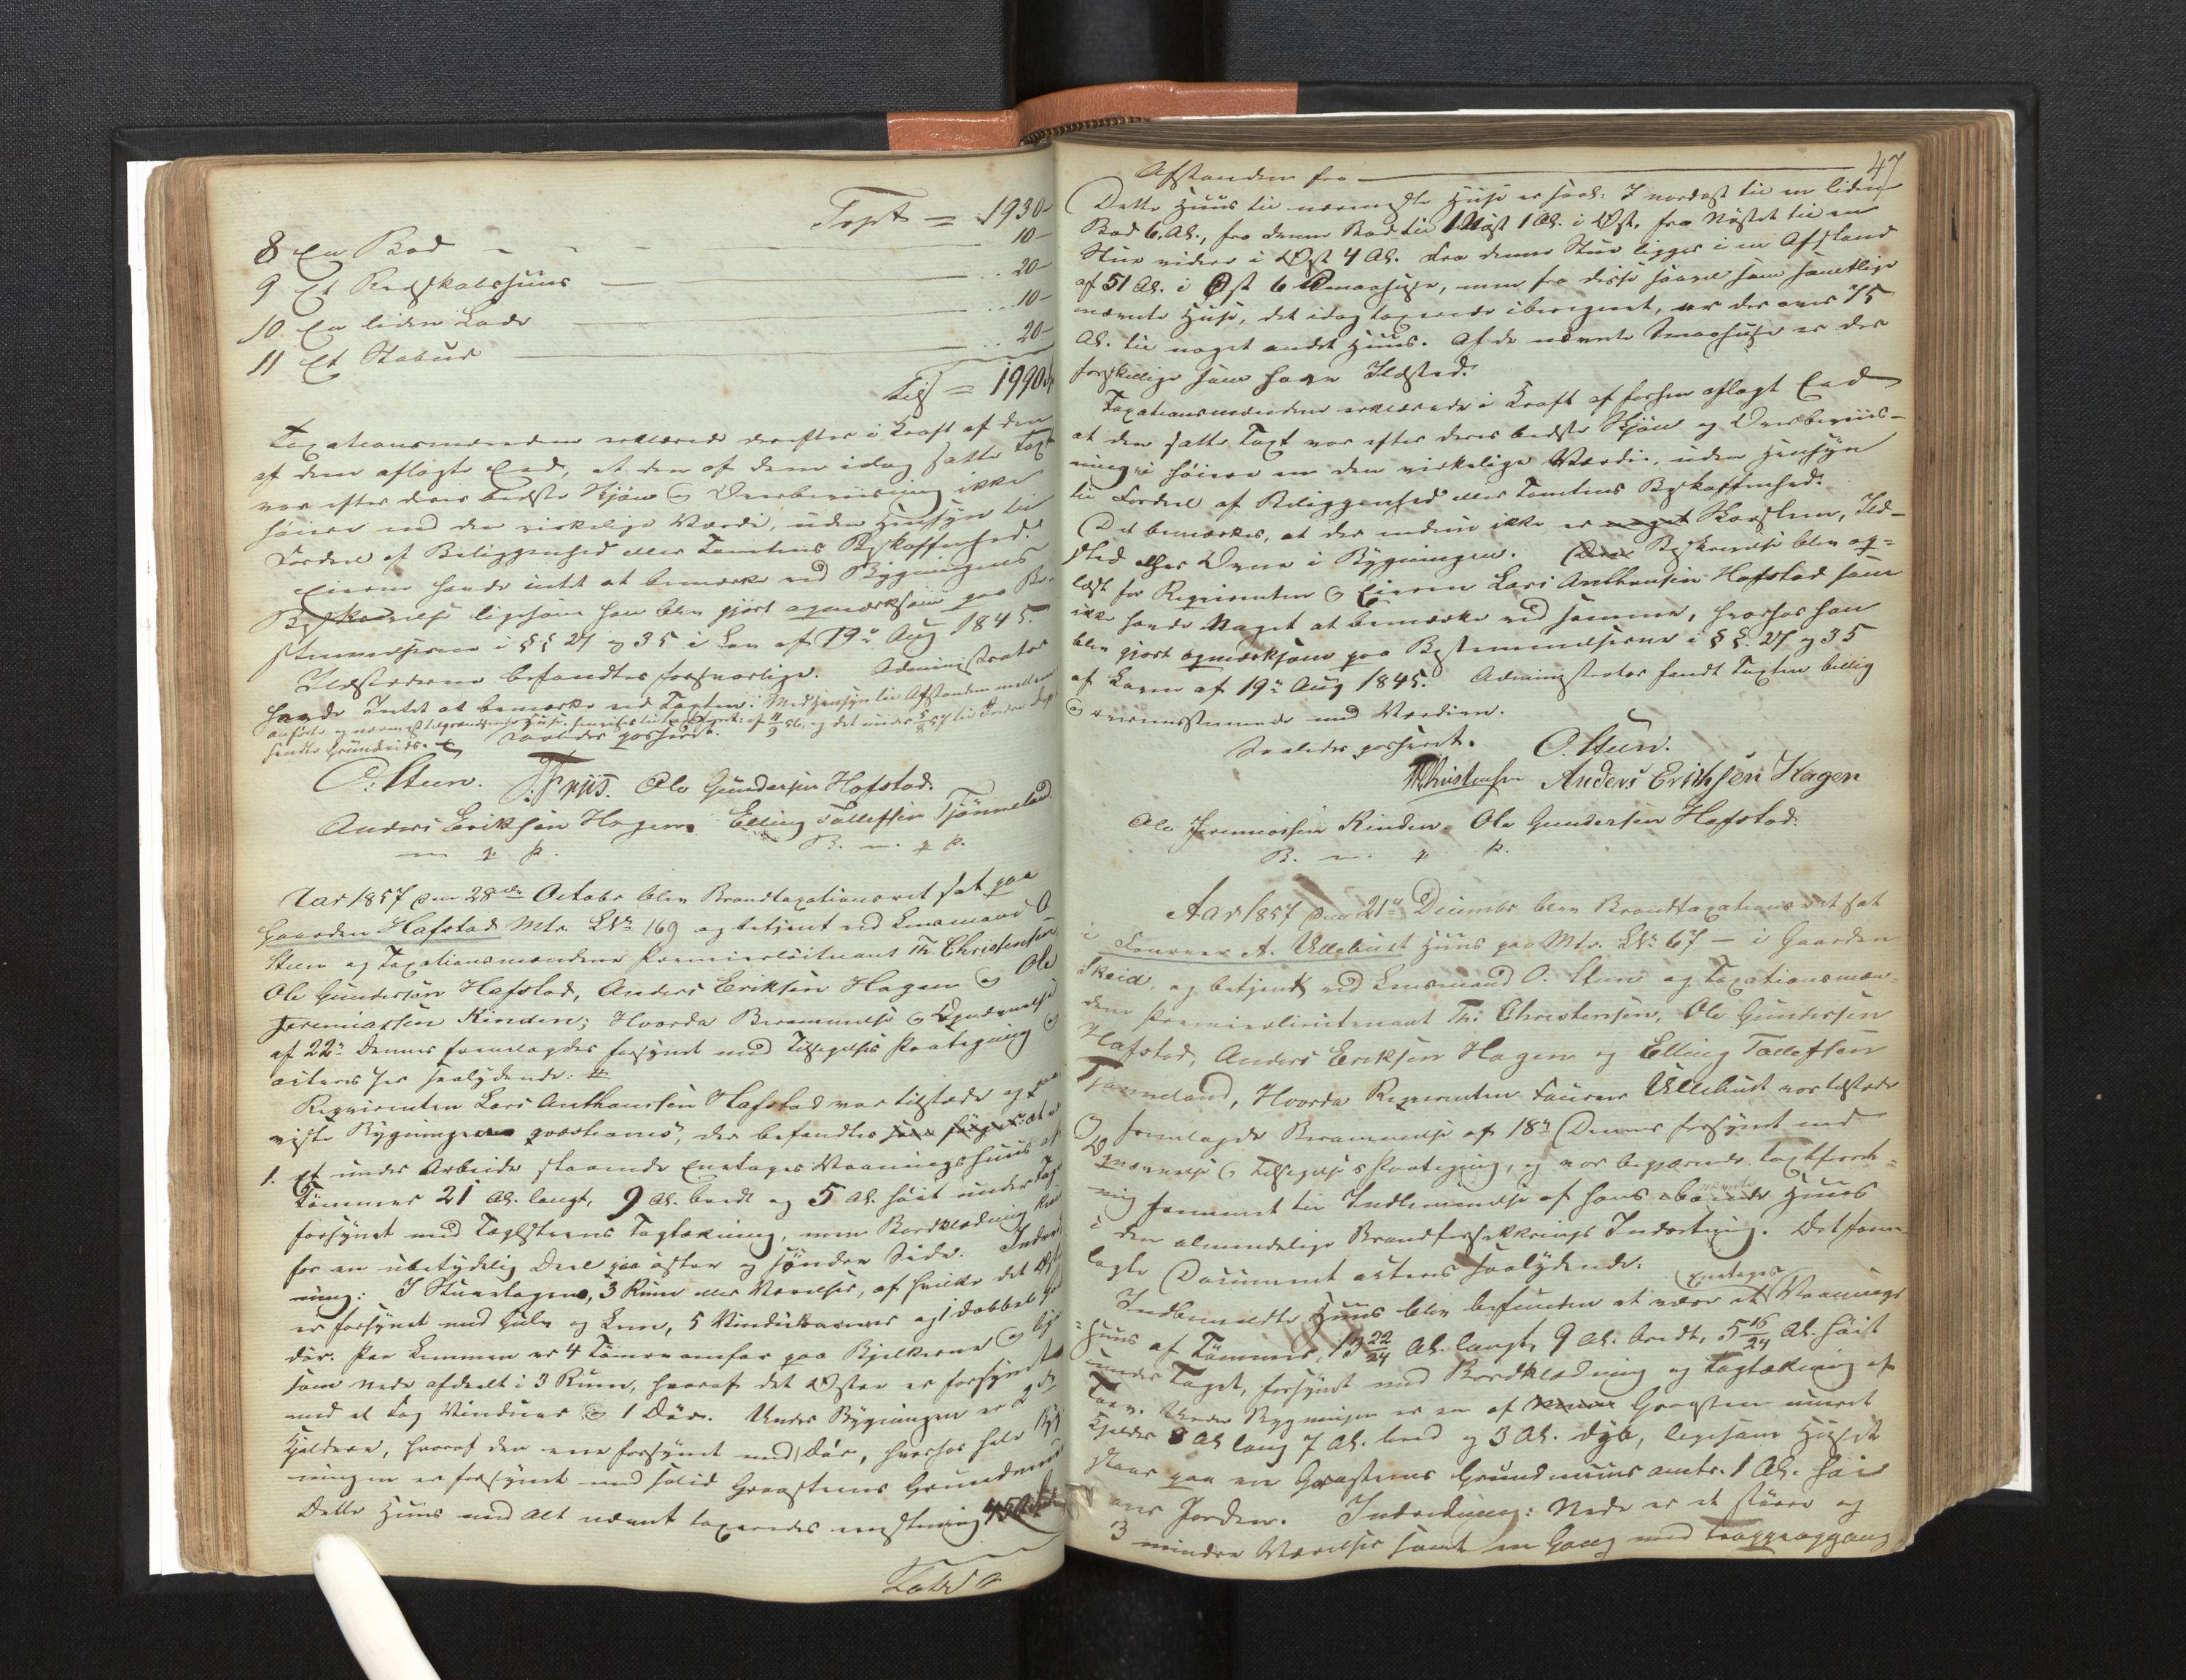 Tspt = 1930-
8 En Bod - - - 10-
9 Et Redskabshuus — 20-
10 En liden Lade — 10-
11 Et Stabur — 20-
Tils = 1990
Taxationsmændene erklærede derefter i Kraft af den
af dem aflagte Eed, at den af dem idag satte Taxt
var efter deres bedste Skjøn og Overbeviisning ikke
høiere end den virkelige Værdi, uden Hensyn til
Fordeel af Beliggenhed eller Tomtens Beskaffenhed.
Eieren havde intet at bemærke ved Bygningens
Beskrivelse ligesom han blev gjort opmærksom paa Be-
stemmelserne i §§ 27 og 35 i Lov af 19de Aug 1845.
Ildstederne befandtes forsvarlige. Administrator
havde Intet at bemærke ved Taxten. Med Hensyn til Afstanden mellem
anførte og nærmest tilgrændsende Huse henvises til
sendte Grundrids. Saaledes passeret.
O. Steen. J. Friis. Ole Gundersen Hofstad.
Anders Eriksen Hagen. Elling Tollefsen Tjønneland
m. p. p. B. m. p. p.
Aar 1857 den 28de Octobr blev Brandtaxationsret sat paa
Gaarden Hafstad Mtr. LNo 169 og betjent ved Lensmand O
Steen og Taxationsmændene Premierløitnant Th. Christensen,
Ole Gundersen Hafstad, Anders Eriksen Hagen og Ole
Jeremiassen Rinden; Hvorda Berammelse og Opnævnelse
af 22de Dennes fremlagdes forsynet med Tilsigelses Paategning og
acteres her saalydende:
Reqvirenten Lars Anthonsen Hafstad var tilstæde og paa
viste Bygningen qvæstionis, der befandtes at v
1. Et under Arbeide staaende Eenetages Vaaningshuus af
Tømmer 21 Al. langt, 9 Al. bredt og 5 Al. høit under Tag
forsynet med Taglsteens Tagtækning, men Bordklædning kun
for en ubetydelig Deel paa øster og søndre Side. Indret
ning: I Stueetagen, 3 Rum eller Værelser, af hvilke det
er forsynet med Gulv og Lem, 5 Vinduskarmer og 1 dobbel
dør. Paa Lemmen er 4 Tømreomfar paa Bjelkerne og
som nede afdeelt i 3 Rum, hvoraf det Østre er forsynet
med et Fag Vinduer og 1 Dør. Under Bygningen er 2de
Kjeldere, hvoraf den ene forsynet med Dør, hvorhos hele Byg
ningen er forsynet med solid Graasteens Grundmuur
Dette Huus med Alt nævnt taxeredes eenstemmig 450
47
Afstanden fra —
Dette Huus til nærmeste Huse er saal: I nordost til en liden
Bod 6 Al., fra denne Bod til 1 Nøst 1 Al. i Øst, fra Nøstet til en
Stue videre i Øst 4 Al. Fra denne Stue ligger i en Afstand
af 51 Al. i Øst 6 Smaahuse, men fra disse saavel som samtlige
nævnte Huse, det idag taxerede iberegnet, er der over 75
Al. til noget andet Huus. Af de nævnte Smaahuse er der
forskjellige som have Ildsted.
Taxationsmændene erklærede i Kraft af forhen aflagt Eed
at den satte Taxt var efter deres bedste Skjøn og Overbeviis-
ning ei høiere en den virkelige Værdie, uden Hensyn
til Fordeel af Beliggenhed eller Tomtens Beskaffenhed.
Det bemærkes, at der endnu ikke er noget Skorsteen, Ild-
sted eller Ovne i Bygningen. Beskrivelse blev op-
læst for Reqvirenten og Eieren Lars Anthonsen Hafstad som
ikke havde Noget at bemærke ved samme, hvorhos han
blev gjort opmærksom paa Bestemmelserne i §§. 27 og 35
af Loven af 19de Aug 1845. Administrator fandt Taxten billig
og overeensstemmende med Værdien.
Saaledes passeret. O. Steen.
ThChristensen Anders Erichsen Hagen
Ole Jeremiassen Rinden. Ole Gundersen Hafstad.
B. m. p. p.
Aar 1857 den 21de Decembr blev Brandtaxationsret sat
i Fourer A. Ullebust Huus paa Mtr. LNo 67 — i Gaarden
Skeid, og betjent ved Lensmand O. Steen og Taxationsmæn-
dene Premierlieutenant Th: Christensen, Ole Gundersen
Hafstad, Anders Eriksen Hagen og Elling Tollefsen
Tjønneland, Hvorda Reqvirenten Fourer Ullebust var tilstæde
og fremlagde Berammelse af 18de Dennes forsynet med
Opnævnelse og Tilsigelses Paategning, og var begjærende Taxtforret-
ning fremmet til Indlemmelse af hans Huus
i den almindelige Brandforsikkrings Indretning. Det frem-
lagte Document acteres saalydende.
Indbemeldte Huus blev befunden at være et Eenetages Vaanings
=huus af Tømmer, 13 22/24 Al. langt, 9 Al. bredt, 5 16/24 Al. høit
under Taget, forsynet med Bordklædning og Tagtækning af
Torv. Under Bygningen er en af Graasteen muret
Kjelder 8 Al lang 7 Al. bred og 3 Al. dyb, ligesom Huset
staar paa en Graasteens Grundmuur omtr. 1 Al. høi
over Jorden. Indredning: Nede er et større og
3 mindre Værelser samt en Gang med Trappeopgang